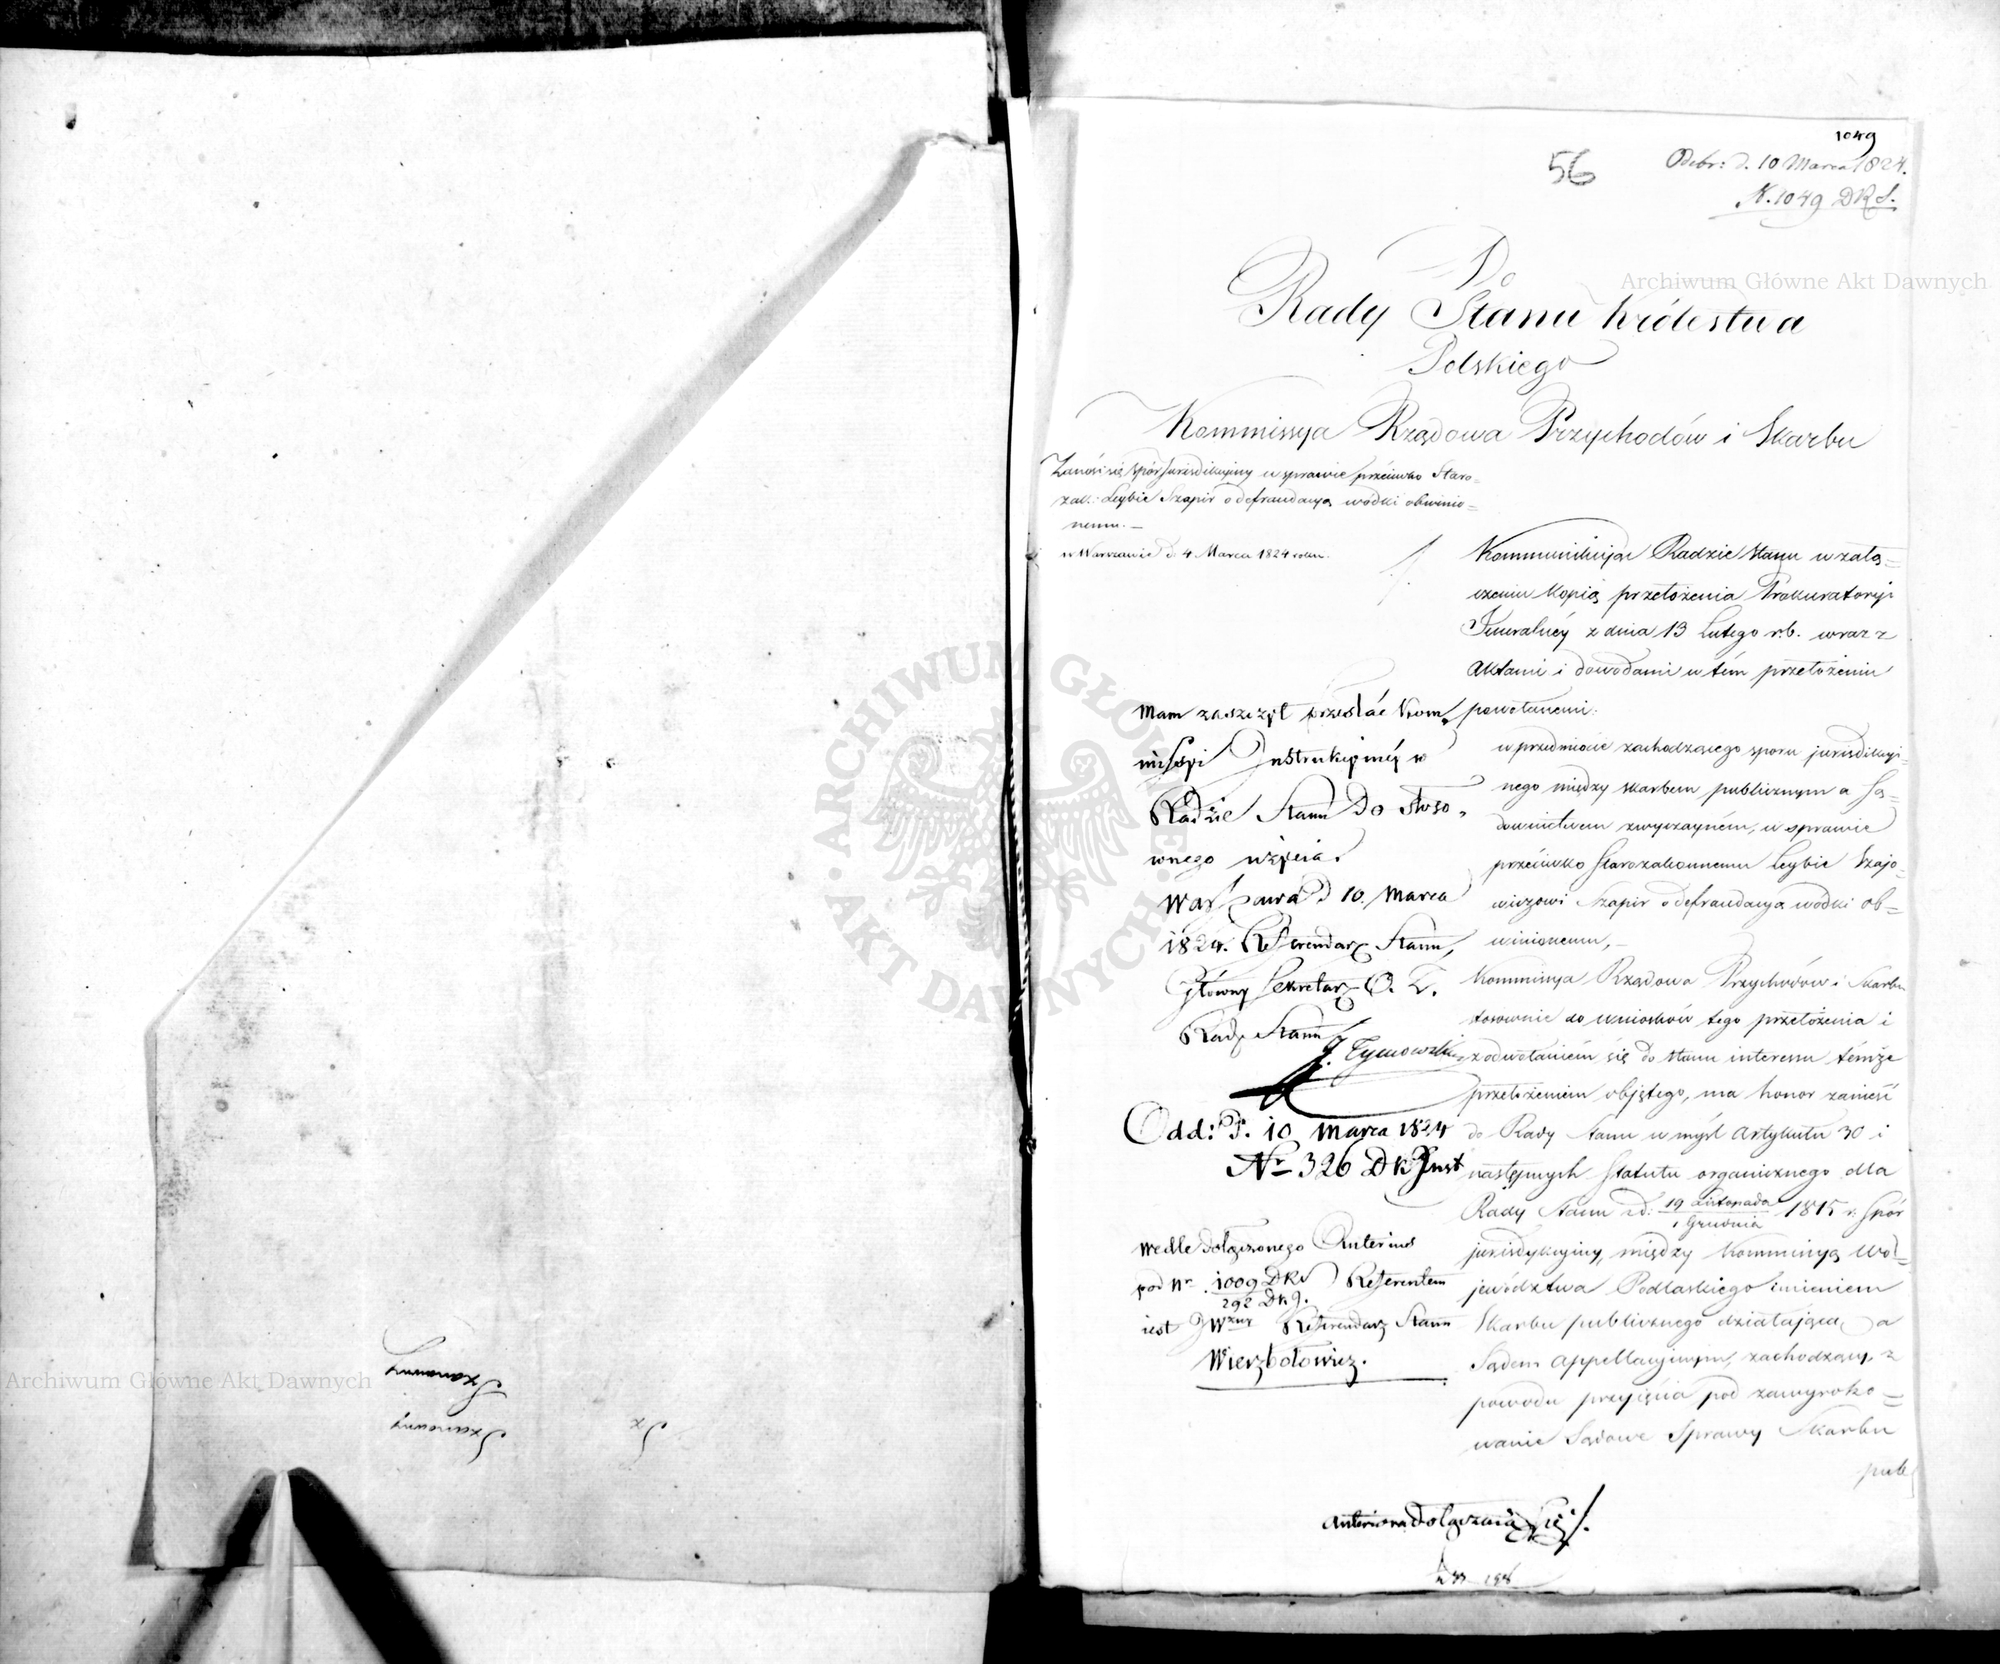 Szanowny
Szanowny
Sz
1049
56
Odebr: d. 10 Marca 1824.
N. 1049 DRS.
Do
Rady Stanu Królestwa
Polskiego
Kommissya Rządowa Przychodów i Skarbu
Zanosi się spór jurisdikcyiny w sprawie przeciwko Staro=
zak: Leybie Szapir o defraudacyą wódki obwinio=
nemu. —
w Warszawie d. 4 Marca 1824 roku.
Kommunikując Radzie Stanu w załą=
czeniu kopią przełożenia Prokuratoryi
Jeneralnéy z dnia 13 Lutego r.b. wraz z
Aktami i dowodami w tém przełożeniu
powołanemi:
w przedmiocie zachodzącego sporu jurisdikcyi=
nego między skarbem publicznym a Są=
downictwem zwyczayném, w sprawie
przeciwko Starozakonnemu Leybie Szajo=
wiczowi Szapir o defraudacyą wódki ob=
winionemu, —
Kommissya Rządowa Przychodów i Skarbu
stosownie do wniosków tego przełożenia i
z odwołaniem się do stanu interessu témże
przełożeniem objętego, ma honor zanieść
do Rady Stanu w myśl Artykułu 30 i
następnych Statutu organicznego dla
Rady Stanu z d: 19 Listopada / 1 Grudnia 1815 r. Spór
jurisdykcyiny, między Kommissyą Wo=
jewództwa Podlaskiego imieniem
Skarbu publicznego działającą a
Sądem Appellacyjnym, zachodzący, z
powodu przyjęcia pod zawyroko=
wanie Sądowe Sprawy Skarbu
publ
Mam zaszczyt przesłać Kom,
missyi Instrukcyinéy w
Radzie Stanu do stoso,
wnego użycia.
Warszawa d 10. Marca
1824. Referendarz Stanu,
Główny Sekretarz
Rady Stanu
J. Tymowski
Odd: d. 10 Marca 1824
Nr 326 DKInst
Wedle dołączonego Anterius
pod Nr 1009 DRS / 292 DKJ. Referentem
iest JWzny Referendarz Stanu
Wierzbołowicz.
Anteriora dołączaią się.
Archiwum Główne Akt Dawnych
Archiwum Główne Akt Dawnych
ARCHIWUM GŁÓWNE AKT DAWNYCH